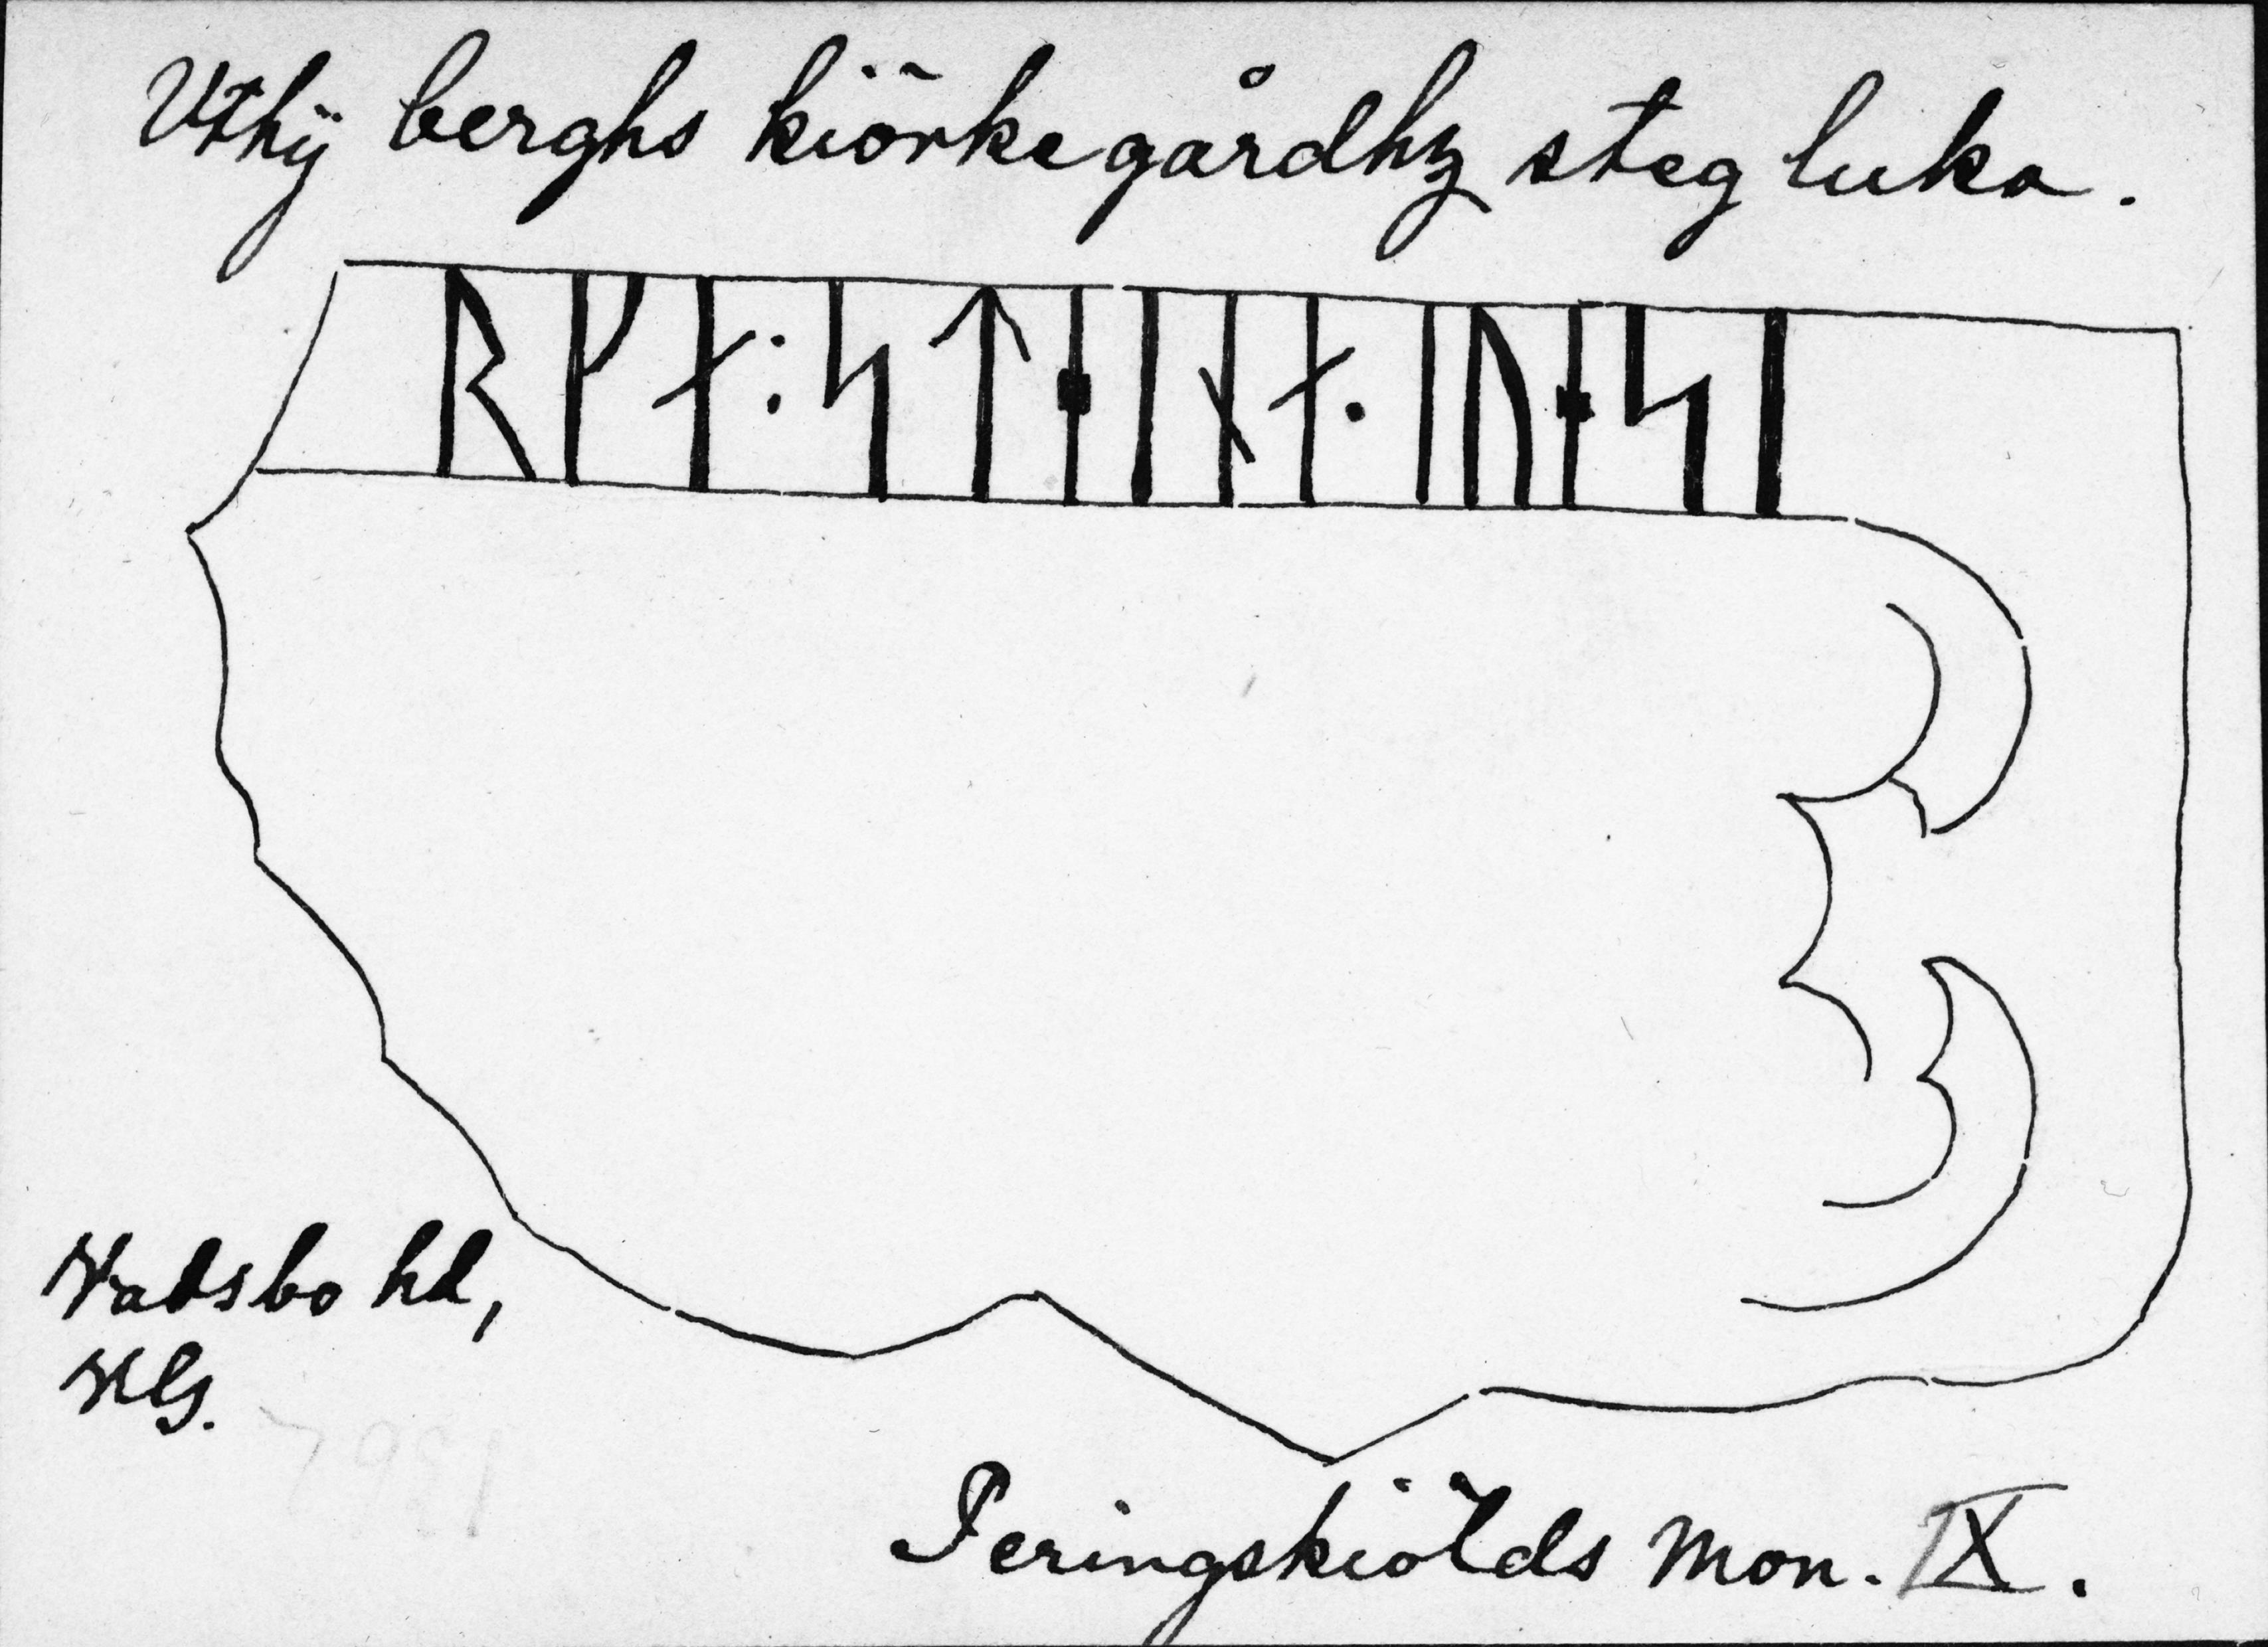 Vthÿ berghs kiörkegårdhz stegluka.
ᚱᚴᛅ:ᛋᛏᛂᛁᚾᛅ·ᛁᚢᛂᛋᛁ
Vadsbo hd,
VG.
Peringskiölds Mon. IX.